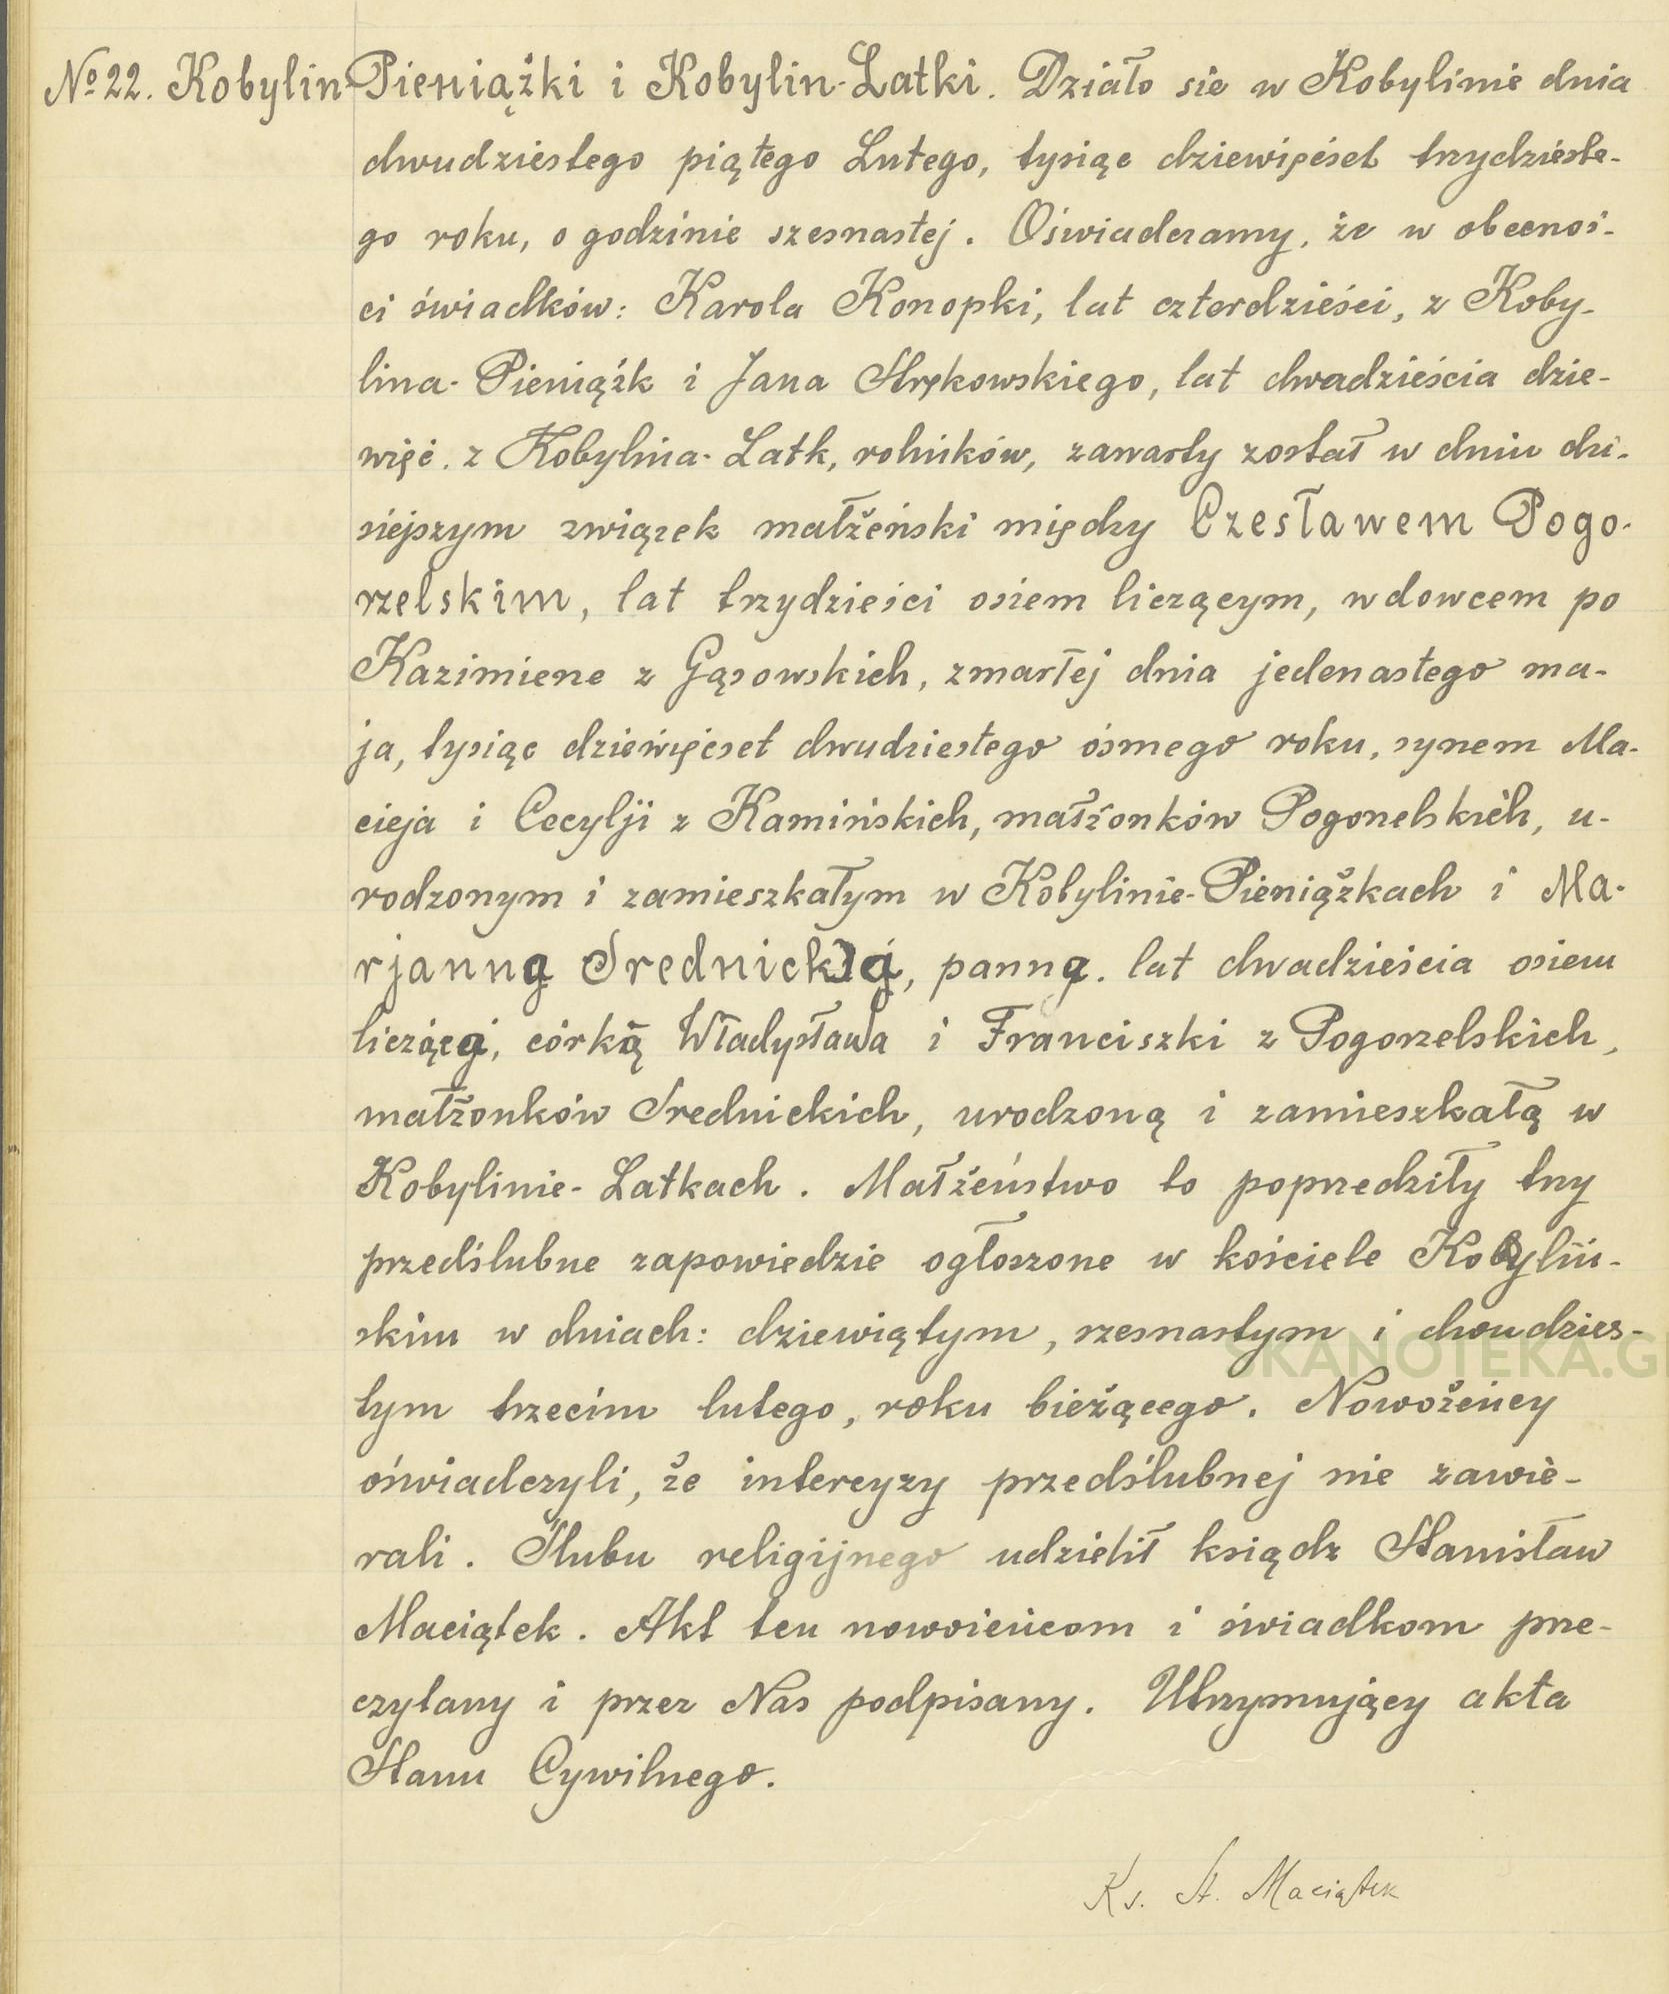 № 22. Kobylin-Pieniążki i Kobylin-Latki. Działo sie w Kobylinie dnia
dwudziestego piątego Lutego, tysiąc dziewięćset trzydzieste-
go roku, o godzinie szesnastej. Oświadczamy, że w obecnoś-
ci świadków: Karola Konopki, lat czterdzieści, z Koby-
lina-Pieniążk i Jana Strękowskiego, lat dwadzieścia dzie-
więć. z Kobylina-Latk, rolników, zawarty został w dniu dzi-
siejszym związek małżeński między Czesławem Pogo-
rzelskim, lat trzydzieści osiem liczącym, wdowcem po
Kazimierze z Gąsowskich, zmarłej dnia jedenastego ma-
ja, tysiąc dziewięćset dwudziestego ósmego roku, synem Ma-
cieja i Cecylji z Kamińskich, małżonków Pogorzelskich, u-
rodzonym i zamieszkałym w Kobylinie-Pieniążkach i Ma-
rjanną Srednicką, panną. lat dwadzieścia osiem
liczącą, córką Władysława i Franciszki z Pogorzelskich,
małżonków Srednickich, urodzoną i zamieszkałą w
Kobylinie-Latkach. Małżeństwo to poprzedziły trzy
przedślubne zapowiedzie ogłoszone w kościele Kobyliń-
skim w dniach: dziewiątym, szesnastym i dwudzies-
tym trzecim lutego, roku bieżącego. Nowożeńcy
oświadczyli, że intercyzy przedślubnej nie zawie-
rali. Ślubu religijnego udzielił ksiądz Stanisław
Maciątek. Akt ten nowożeńcom i świadkom prze-
czytany i przez Nas podpisany. Utrzymujący akta
Stanu Cywilnego.
Ks. St. Maciątek
SKANOTEKA.G